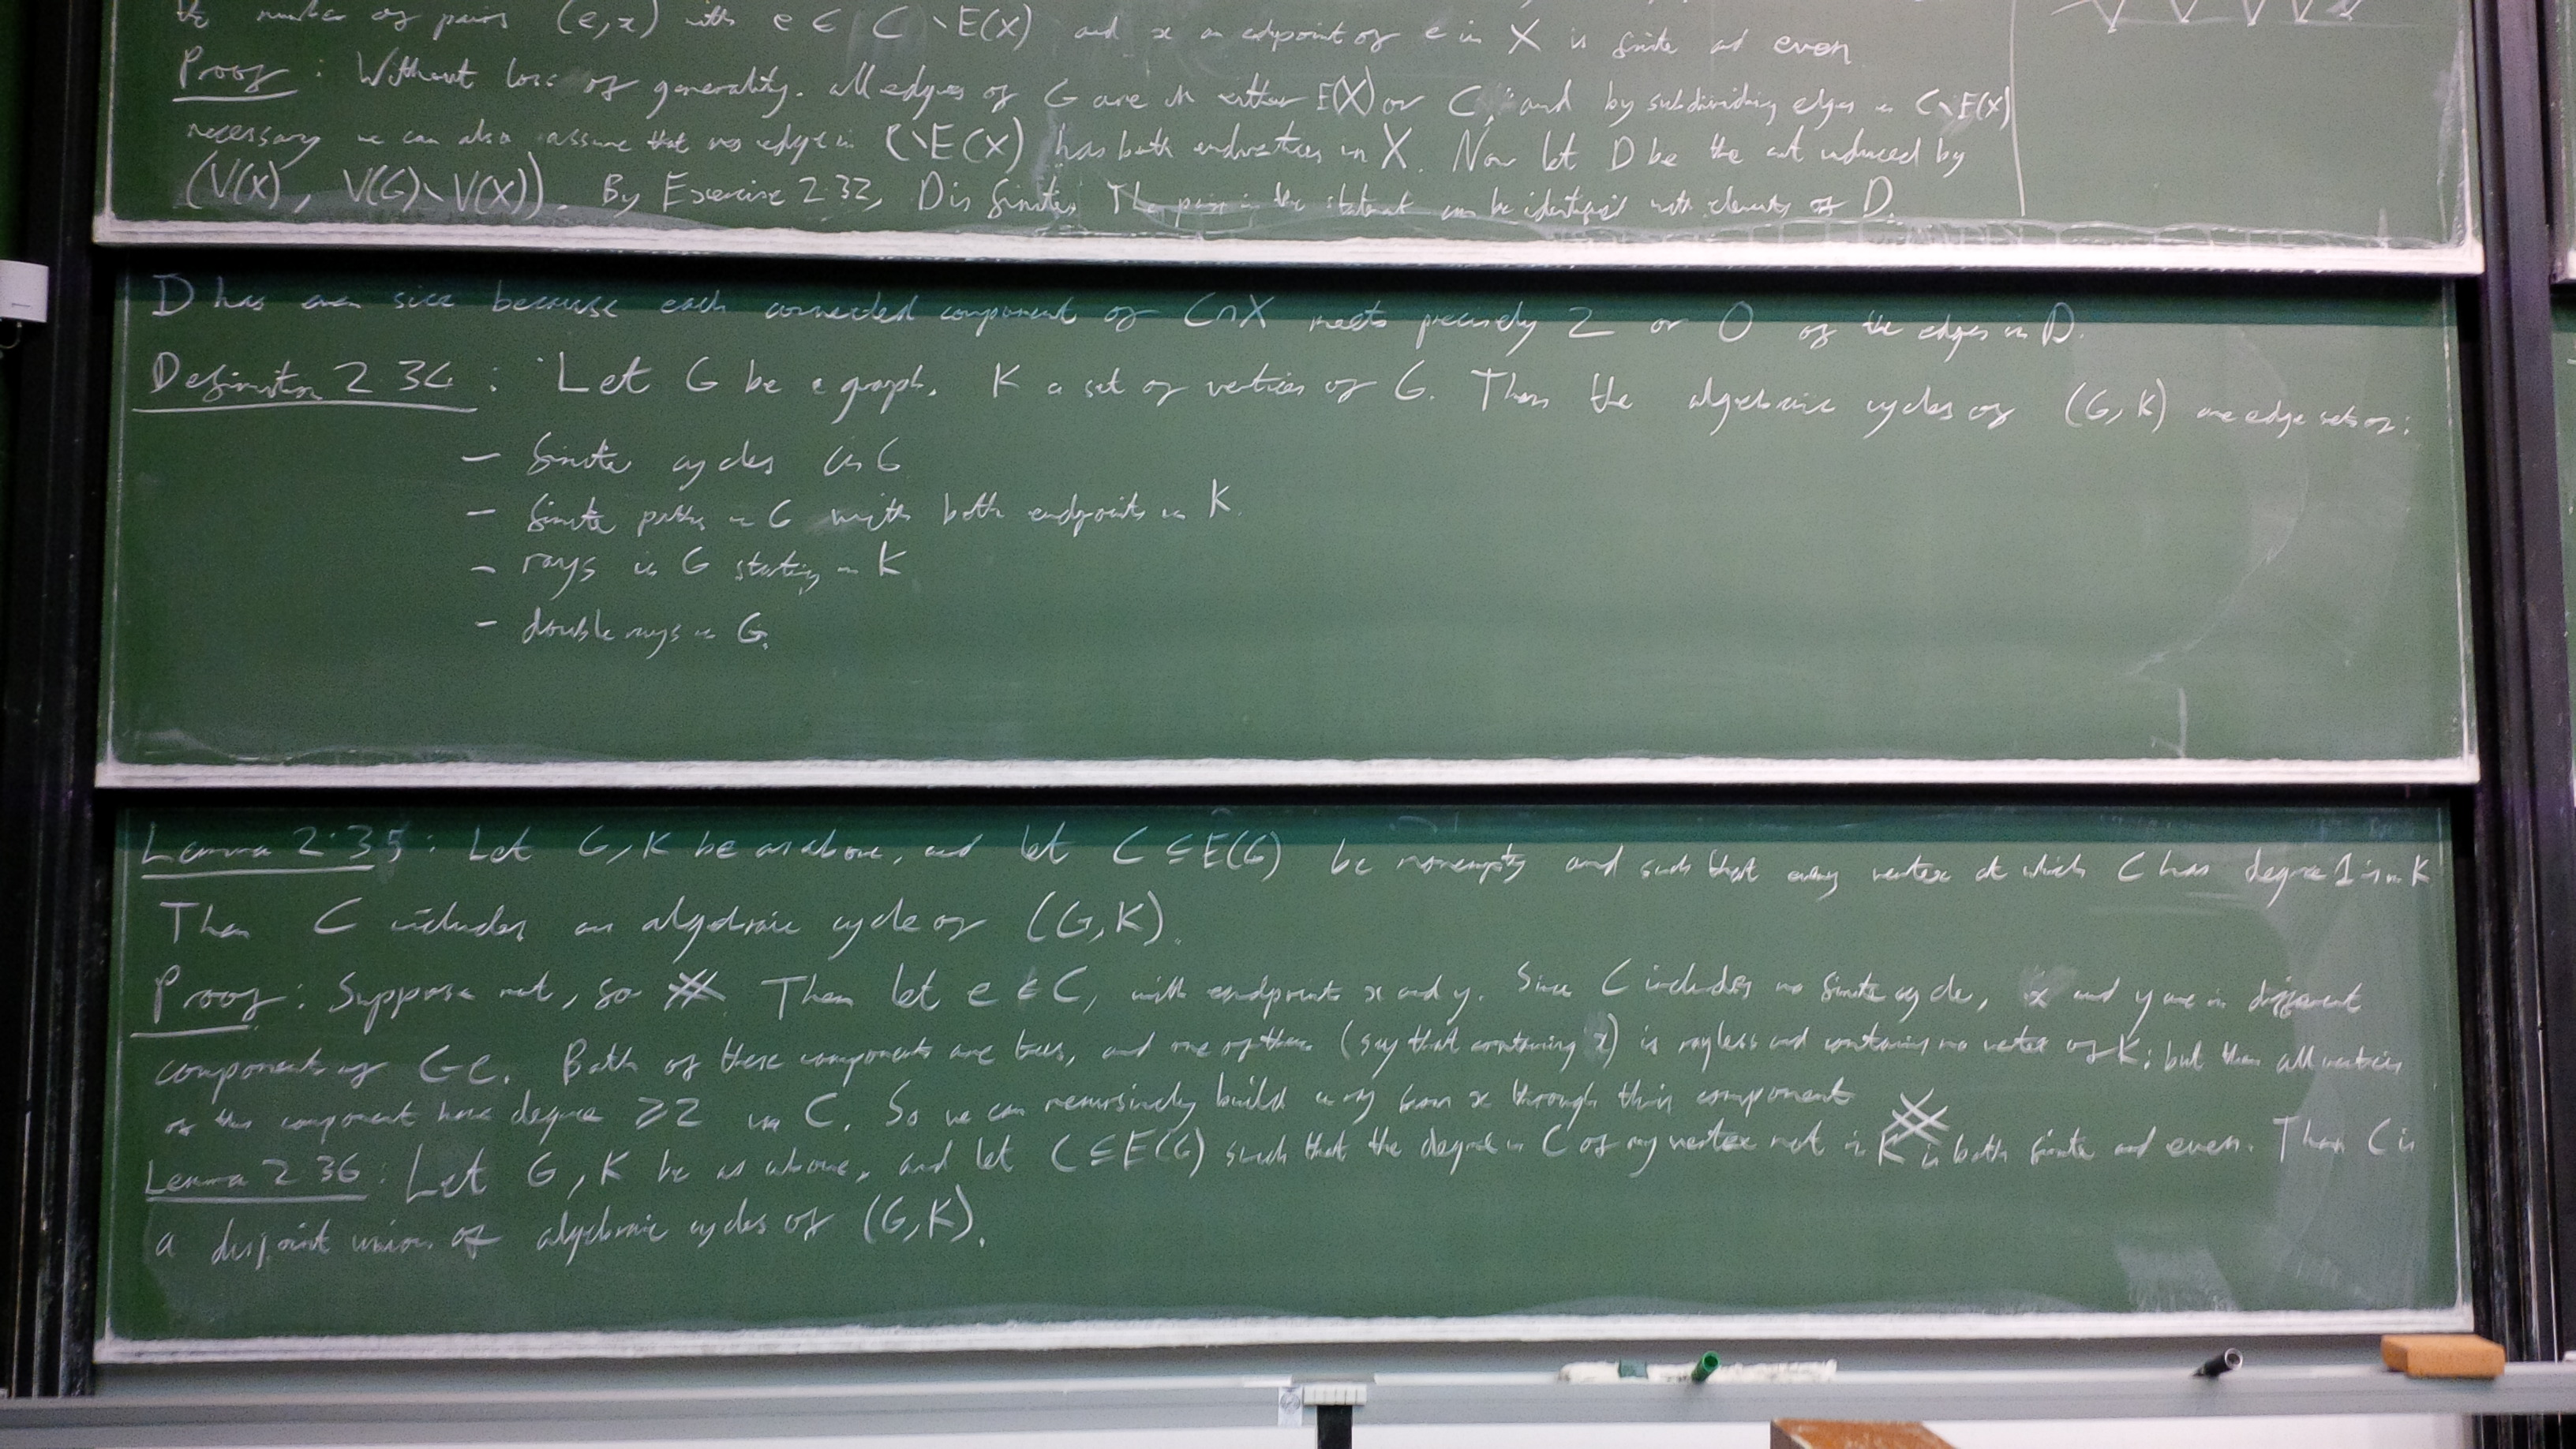 the number of pairs (e,x) with e ∈ C∖E(X) and x an endpoint of e in X is finite and even
Proof: Without loss of generality. all edges of G are in either E(X) or C, and by subdividing edges in C∖E(X)
necessary we can also assume that no edge in C∖E(X) has both endvertices in X. Now let D be the cut induced by
(V(X), V(G)∖V(X)). By Exercise 2.32, D is finite. The pairs in the statement can be identified with elements of D.
D has even size because each connected component of C∩X meets precisely 2 or 0 of the edges in D.
Definition 2.34: Let G be a graph, K a set of vertices of G. Then the algebraic cycles of (G,K) are edge sets of:
- finite cycles in G
- finite paths in G with both endpoints in K.
- rays in G starting in K
- double rays in G.
Lemma 2.35: Let G,K be as above, and let C ⊆ E(G) be nonempty and such that every vertex at which C has degree 1 is in K
Then C includes an algebraic cycle of (G,K).
Proof: Suppose not, so ※. Then let e ∈ C, with endpoints x and y. Since C includes no finite cycle, x and y are in different
components of C-e. Both of these components are trees, and one of them (say that containing x) is rayless and contains no vertex of K; but then all vertices
of this component have degree ≥2 in C. So we can recursively build a ray from x through this component ※
Lemma 2.36: Let G,K be as above, and let C ⊆ E(G) such that the degree in C of any vertex not in K is both finite and even. Then C is
a disjoint union of algebraic cycles of (G,K).